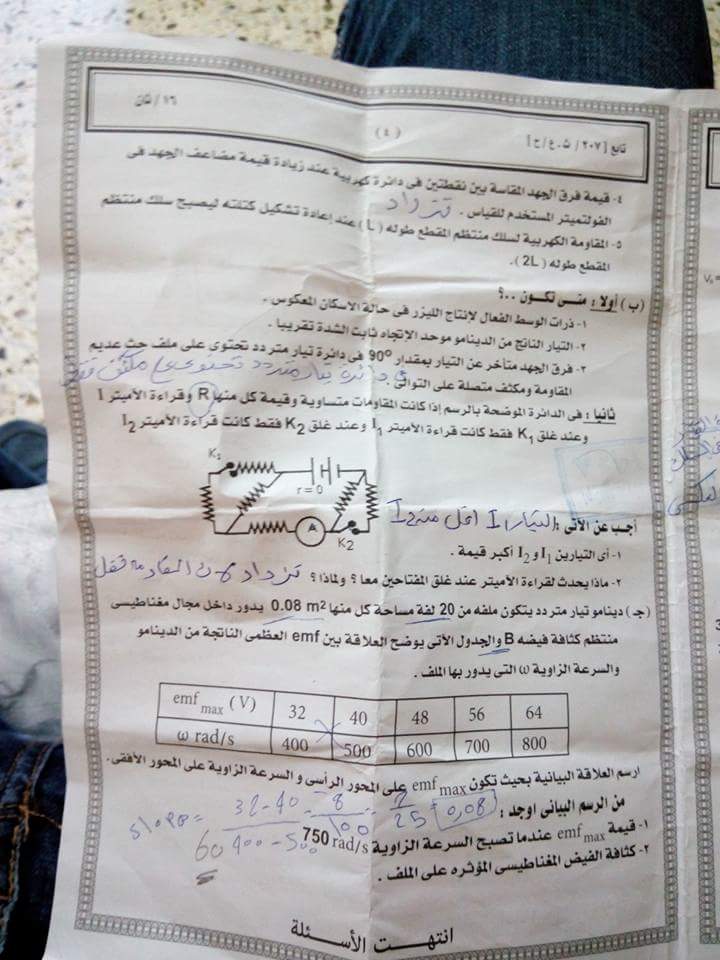 ١٦ / ثان
(٤)
تابع [ ٢٠٧ / ٥٠ع / ح ]
٤- قيمة فرق الجهد المقاسة بين نقطتين فى دائرة كهربية عند زيادة قيمة مضاعف الجهد فى
الفولتميتر المستخدم للقياس . تزداد
٥- المقاومة الكهربية لسلك منتظم المقطع طوله ( L ) عند إعادة تشكيل كتلته ليصبح سلك منتظم
المقطع طوله ( 2L ).
(ب) أولا : متى تكون ..؟
١- ذرات الوسط الفعال لإنتاج الليزر فى حالة الاسكان المعكوس .
٢- التيار الناتج من الدينامو موحد الإتجاه ثابت الشدة تقريبا .
٣- فرق الجهد متأخر عن التيار بمقدار 90° فى دائرة تيار متردد تحتوى على ملف حث عديم
المقاومة ومكثف متصلة على التوالى
دائرة تيار متردد تحتوى على مكثف فقط
ثانيا : فى الدائرة الموضحة بالرسم إذا كانت المقاومات متساوية وقيمة كل منها R وقراءة الأميتر I
وعند غلق K1 فقط كانت قراءة الأميتر I1 وعند غلق K2 فقط كانت قراءة الأميتر I2
K1
r = 0
A
K2
أجب عن الآتى : التيار I1 اقل من I2
١- أى التيارين I1 و I2 أكبر قيمة .
٢- ماذا يحدث لقراءة الأميتر عند غلق المفتاحين معا ؟ ولماذا ؟ تزداد لان المقاومة تقل
(جـ) دينامو تيار متردد يتكون ملفه من 20 لفة مساحة كل منها 0.08 m² يدور داخل مجال مغناطيسى
منتظم كثافة فيضه B والجدول الآتى يوضح العلاقة بين emf العظمى الناتجة من الدينامو
والسرعة الزاوية ω التى يدور بها الملف .
emf max (V) 32 40 48 56 64
ω rad/s 400 500 600 700 800
ارسم العلاقة البيانية بحيث تكون emf max على المحور الرأسى و السرعة الزاوية على المحور الأفقى .
من الرسم البيانى اوجد :
slope = 32-40 / 400-500 = 8 / 100 = 2 / 25 = 0,08
١- قيمة emf max عندما تصبح السرعة الزاوية 750 rad/s
60
٢- كثافة الفيض المغناطيسى المؤثره على الملف .
انتهت الأسئلة